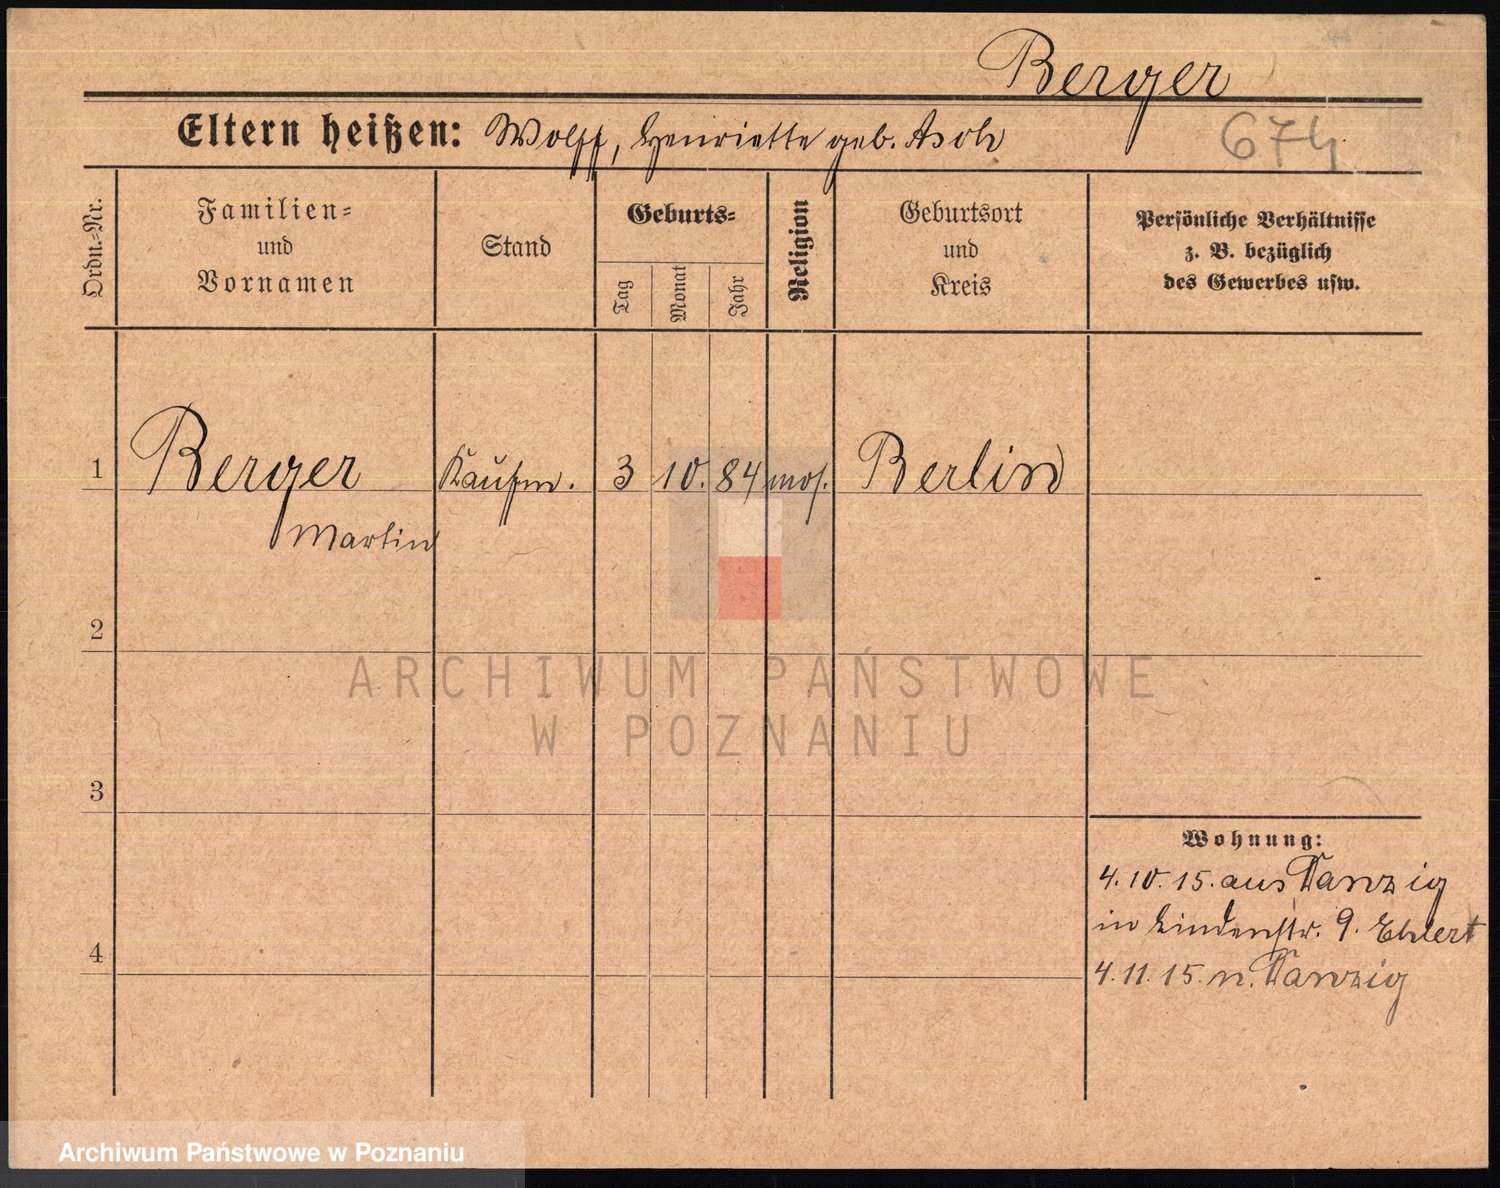 Berger
Eltern heißen: Wolff, Henriette geb. Asch
674
Ordn.-Nr.
Familien-
und
Vornamen
Stand
Geburts-
Tag
Monat
Jahr
Religion
Geburtsort
und
Kreis
Persönliche Verhältnisse
z. B. bezüglich
des Gewerbes usw.
1 Berger Kaufm. 3 10. 84 mos. Berlin
Martin
2
3
4
Wohnung:
4.10.15. aus Danzig
in Lindenstr. 9. Ehlert
4.11.15. n. Danzig
ARCHIWUM PAŃSTWOWE
W POZNANIU
Archiwum Państwowe w Poznaniu